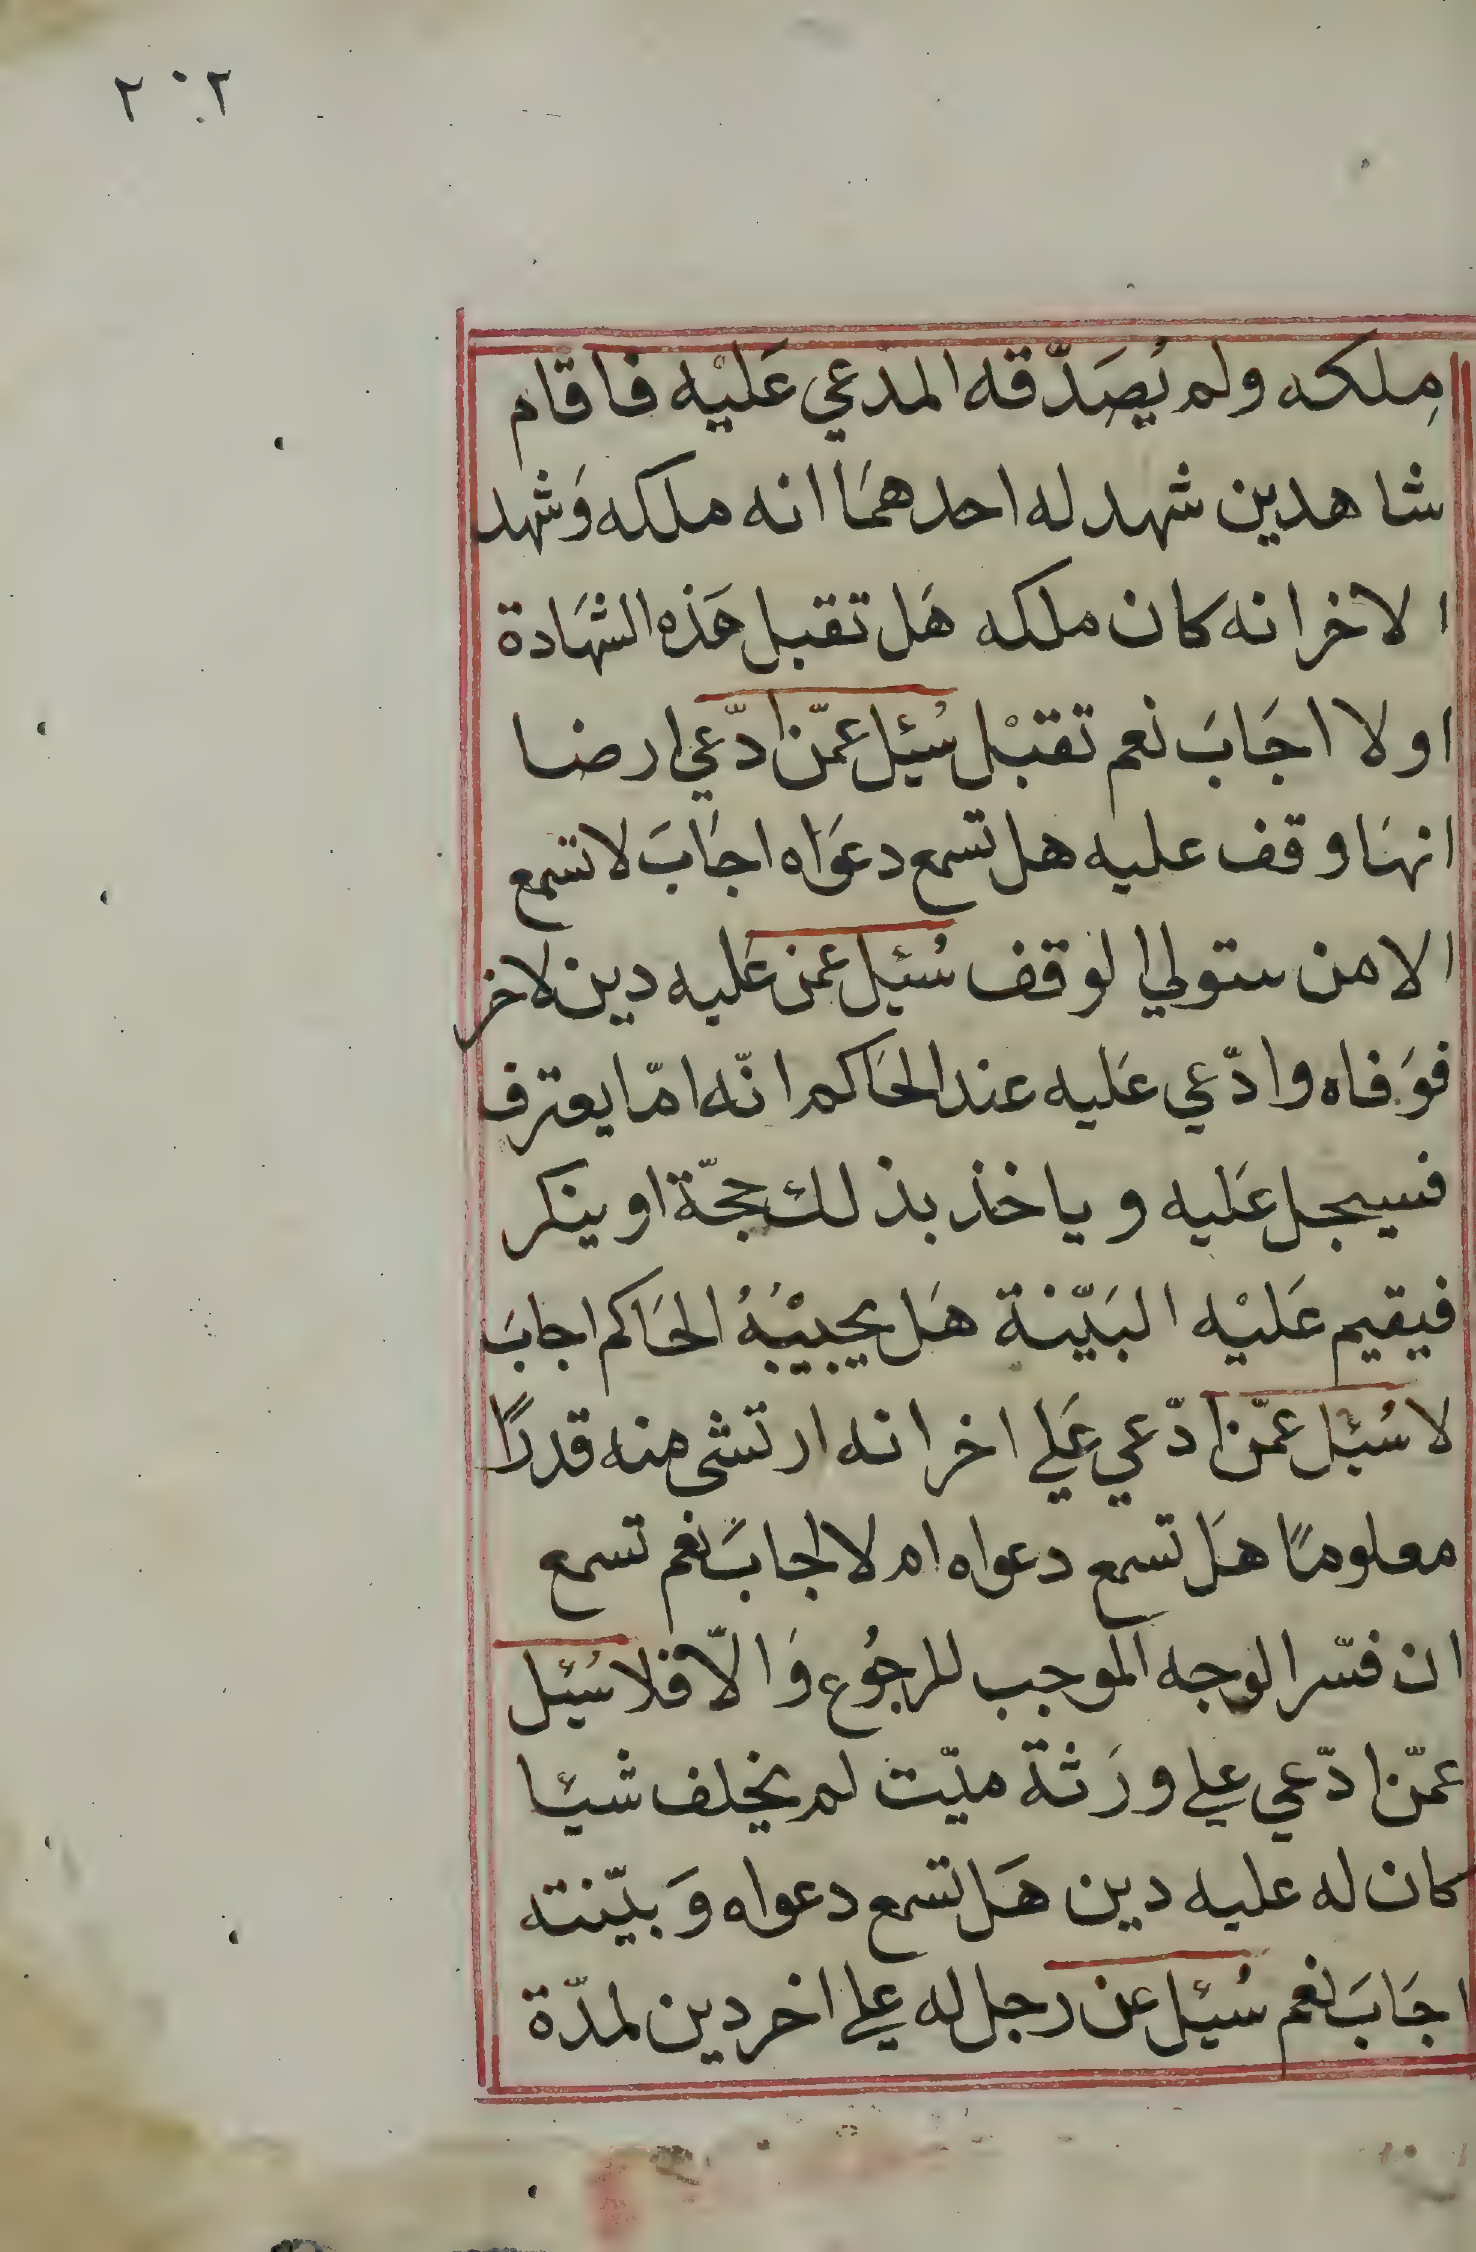 ٢٠٢
مِلكه ولم يُصَدّقه المدّعي عَليْه فاقام
شاهدين شهد له احدهمَا انه ملكه وَشهد
الاخر انه كان ملكه هَل تقبل هَذه الشهَادة
اولا اجَابَ نعم تقبْل سُئِل عمّن ادّعي ارضا
انهَا وقف عليه هل تسمع دعوَاه اجَابَ لا تسمع
الا من ستولي الوقف سُئِل عمن عَليه دين لاخر
فوَفاه وادّعي عَليه عند الحَاكم انّه امّا يعترف
فسيجل عَليه وياخذ بذلك حجّة او ينكر
فيقيم عَليْه البَيّنة هَل يجيبْهُ الحَاكم اجابَ
لا سُئِل عمّن ادّعي عَلي اخر انه ارتشى منه قدرًا
معلومًا هَل تسمع دعواه ام لا اجابَ نعم تسمع
ان فسّر الوجه الموجب للرجُوع وَالاّ فلا سُئِل
عمّن ادّعي علي ورَثة ميّت لم يخلف شيئا
كان له عليه دين هَل تسمع دعواه وَبيّنته
اجَابَ نعم سُئِل عن رجل له علي اخر دين لمدّة